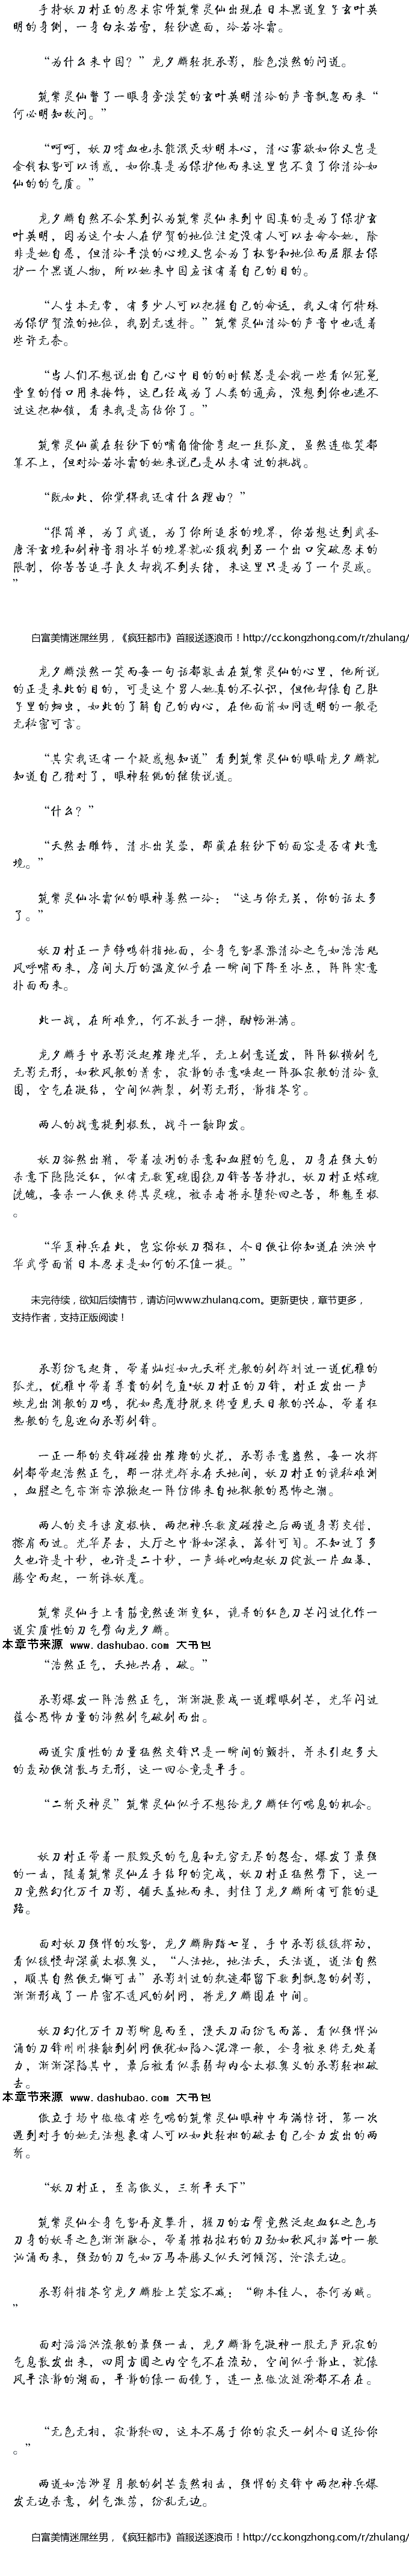 手持妖刀村正的忍术宗师筑紫灵仙出现在日本黑道皇子玄叶英
明的身侧，一身白衣若雪，轻纱遮面，冷若冰霜。
“为什么来中国？”龙夕麟轻抚承影，脸色淡然的问道。
筑紫灵仙瞥了一眼身旁淡笑的玄叶英明清冷的声音飘忽而来“
何必明知故问。”
“呵呵，妖刀嗜血也未能泯灭妙明本心，清心寡欲如你又岂是
金钱权势可以诱惑，如你真是为保护他而来这里岂不负了你清冷如
仙的的气质。”
龙夕麟自然不会笨到认为筑紫灵仙来到中国真的是为了保护玄
叶英明，因为这个女人在伊贺的地位注定没有人可以去命令她，除
非是她自愿，但清冷平淡的心境又岂会为了权势和地位而屈服去保
护一个黑道人物，所以她来中国应该有着自己的目的。
“人生本无常，有多少人可以把握自己的命运，我又有何特殊
为保伊贺流的地位，我别无选择。”筑紫灵仙清冷的声音中也透着
些许无奈。
“当人们不想说出自己心中目的的时候总是会找一些看似冠冕
堂皇的借口用来掩饰，这已经成为了人类的通病，没想到你也逃不
过这把枷锁，看来我是高估你了。”
筑紫灵仙藏在轻纱下的嘴角偷偷弯起一丝弧度，虽然连微笑都
算不上，但对冷若冰霜的她来说已是从未有过的挑战。
“既如此，你觉得我还有什么理由？”
“很简单，为了武道，为了你所追求的境界，你若想达到武圣
唐泽玄境和剑神音羽冰芊的境界就必须找到另一个出口突破忍术的
限制，你苦苦追寻良久却找不到头绪，来这里只是为了一个灵感。
”
白富美情迷屌丝男，《疯狂都市》首服送逐浪币！http://cc.kongzhong.com/r/zhulang/
龙夕麟淡然一笑而每一句话都敲击在筑紫灵仙的心里，他所说
的正是来此的目的，可是这个男人她真的不认识，但他却像自己肚
子里的蛔虫，如此的了解自己的内心，在他面前如同透明的一般毫
无秘密可言。
“其实我还有一个疑惑想知道”看到筑紫灵仙的眼睛龙夕麟就
知道自己猜对了，眼神轻佻的继续说道。
“什么？”
“天然去雕饰，清水出芙蓉，那藏在轻纱下的面容是否有此意
境。”
筑紫灵仙冰霜似的眼神蓦然一冷：“这与你无关，你的话太多
了。”
妖刀村正一声铮鸣斜指地面，全身气势暴涨清冷之气如浩浩飓
风呼啸而来，房间大厅的温度似乎在一瞬间下降至冰点，阵阵寒意
扑面而来。
此一战，在所难免，何不放手一搏，酣畅淋漓。
龙夕麟手中承影泛起璀璨光华，无上剑意迸发，阵阵纵横剑气
无影无形，如秋风般的萧索，寂静的杀意唤起一阵孤寂般的清冷氛
围，空气在凝结，空间似撕裂，剑影无形，静指苍穹。
两人的战意提到极致，战斗一触即发。
妖刀豁然出鞘，带着凌冽的杀意和血腥的气息，刀身在强大的
杀意下隐隐泛红，似有无数冤魂围绕刀锋苦苦挣扎，妖刀村正炼魂
洗魄，每杀一人便束缚其灵魂，被杀者将永堕轮回之苦，邪魅至极
。
“华夏神兵在此，岂容你妖刀猖狂，今日便让你知道在泱泱中
华武学面前日本忍术是如何的不值一提。”
未完待续，欲知后续情节，请访问www.zhulang.com。更新更快，章节更多，
支持作者，支持正版阅读！
承影纷飞起舞，带着灿烂如九天祥光般的剑辉划过一道优雅的
弧光，优雅中带着尊贵的剑气直*妖刀村正的刀锋，村正发出一声
蛟龙出渊般的刀鸣，犹如恶魔挣脱束缚重见天日般的兴奋，带着狂
热般的气息迎向承影剑锋。
一正一邪的交锋碰撞出璀璨的火花，承影杀意盎然，每一次挥
剑都带起浩然正气，那一抹光辉永存天地间，妖刀村正的诡秘难测
，血腥之气亦渐亦浓掀起一阵仿佛来自地狱般的恐怖之潮。
两人的交手速度极快，两把神兵数度碰撞之后两道身影交错，
擦肩而过。光华尽去，大厅之中静如深夜，落针可闻。不知过了多
久也许是十秒，也许是二十秒，一声娇叱响起妖刀绽放一片血幕，
腾空而起，一斩诛妖魔。
筑紫灵仙手上青筋竟然逐渐变红，诡异的红色刀芒闪过化作一
道实质性的刀气劈向龙夕麟。
本章节来源 www.dashubao.com 大书包
“浩然正气，天地共存，破。”
承影爆发一阵浩然正气，渐渐凝聚成一道耀眼剑芒，光华闪过
蕴含恐怖力量的沛然剑气破剑而出。
两道实质性的力量猛然交锋只是一瞬间的颤抖，并未引起多大
的轰动便消散与无形，这一回合竟是平手。
“二斩灭神灵”筑紫灵仙似乎不想给龙夕麟任何喘息的机会。
妖刀村正带着一股毁灭的气息和无穷无尽的怨念，爆发了最强
的一击，随着筑紫灵仙左手结印的完成，妖刀村正猛然劈下，这一
刀竟然幻化万千刀影，铺天盖地而来，封住了龙夕麟所有可能的退
路。
面对妖刀强悍的攻势，龙夕麟脚踏七星，手中承影缓缓挥动，
看似缓慢却深藏太极奥义，“人法地，地法天，天法道，道法自然
，顺其自然便无懈可击”承影划过的轨迹都留下数到飘忽的剑影，
渐渐形成了一片密不透风的剑网，将龙夕麟围在中间。
妖刀幻化万千刀影瞬息而至，漫天刀雨纷飞而落，看似强悍汹
涌的刀锋刚刚接触到剑网便犹如陷入泥潭一般，全身被束缚无处着
力，渐渐深陷其中，最后被看似柔弱却内含太极奥义的承影轻松破
去。
本章节来源 www.dashubao.com 大书包
傲立于场中微微有些气喘的筑紫灵仙眼神中布满惊讶，第一次
遇到对手的她无法想象有人可以如此轻松的破去自己全力发出的两
斩。
“妖刀村正，至高傲义，三斩平天下”
筑紫灵仙全身气势再度攀升，握刀的右臂竟然泛起血红之色与
刀身的妖异之色渐渐融合，带着摧枯拉朽的刀劲如秋风扫落叶一般
汹涌而来，强劲的刀气如万马奔腾又似天河倾泻，沧浪无边。
承影斜指苍穹龙夕麟脸上笑容不减：“卿本佳人，奈何为贼。
”
面对滔滔洪流般的最强一击，龙夕麟静气凝神一股无声死寂的
气息散发出来，四周方圆之内空气不在流动，空间似乎静止，就像
风平浪静的湖面，平静的像一面镜子，连一点微波涟漪都不存在。
“无色无相，寂静轮回，这本不属于你的寂灭一剑今日送给你
。”
两道如浩渺星月般的剑芒轰然相击，强悍的交锋中两把神兵爆
发无边杀意，剑气激荡，纷乱无边。
白富美情迷屌丝男，《疯狂都市》首服送逐浪币！http://cc.kongzhong.com/r/zhulang/